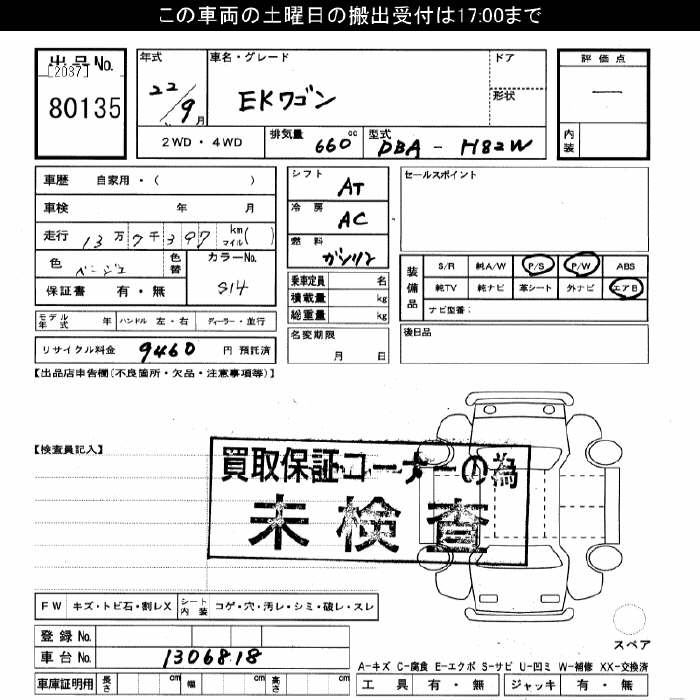 この車両の土曜日の搬出受付は17:00まで
出品No.
[2037]
80135
年式
22/9月
車名・グレード
EKワゴン
ドア
形状
評価点
―
内装
2WD・4WD
排気量 660cc
型式 DBA-H82W
車歴 自家用・( )
車検 年 月
走行 13万7千397 km マイル( )
色 ベージュ 色替
カラーNo. S14
保証書 有・無
シフト AT
冷房 AC
燃料 ガソリン
乗車定員 名
積載量 kg
総重量 kg
セールスポイント
装備品
S/R 純A/W P/S P/W ABS
純TV 純ナビ 革シート 外ナビ エアB
ナビ型番:
モデル年式 年 ハンドル 左・右 ディーラー・並行
名変期限
月 日
後日品
リサイクル料金 9460 円 預託済
【出品店申告欄(不良箇所・欠品・注意事項等)】
【検査員記入】
買取保証コーナーの為
未検査
FW キズ・トビ石・割レX シート内装 コゲ・穴・汚レ・シミ・破レ・スレ
スペア
登録No.
車台No. 1306818
A-キズ C-腐食 E-エクボ S-サビ U-凹ミ W-補修 XX-交換済
車庫証明用 長さ cm 幅 cm 高さ cm
工具 有・無 ジャッキ 有・無